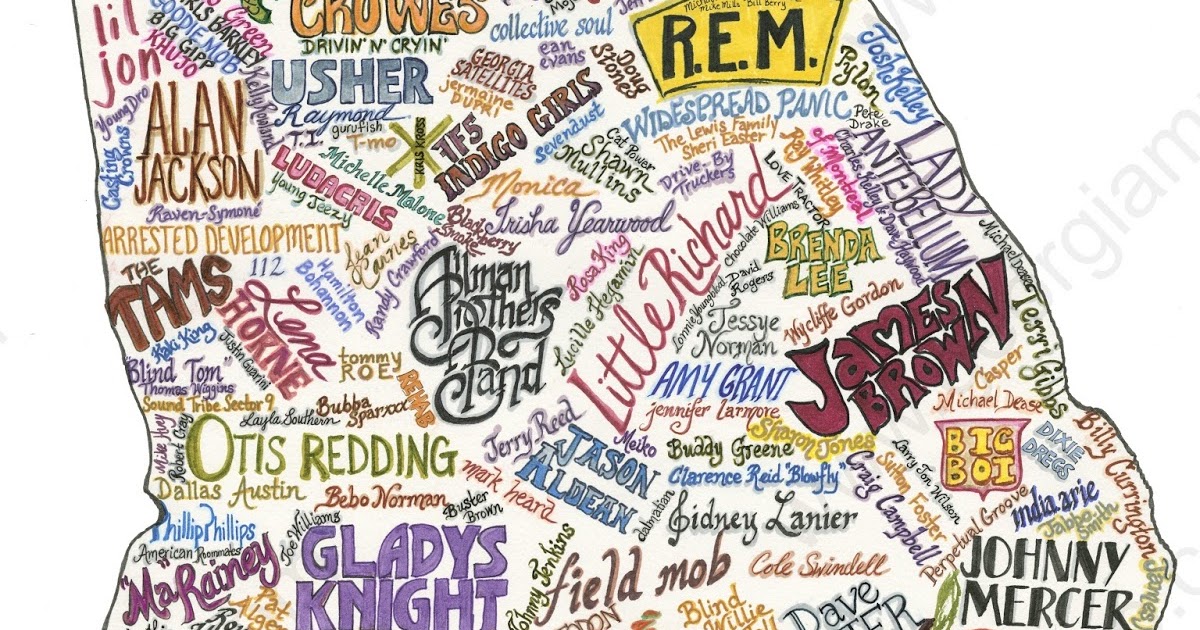 lil
jon
Green
GNARLS BARKLEY
GOODIE MOB
BIG GIPP
KHUJO
CROWES
DRIVIN' N' CRYIN'
collective soul
ean
evans
Mike Mills Bill Berry
R.E.M.
Josh Kelley
Pylon
Pete
Drake
USHER
Raymond
Kelly Rowland
GEORGIA
SATELLITES
jermaine
DUPRI
Doug
Stone
Young Dro
ALAN
JACKSON
Casting
Crowns
T.I.
gurufish
T-mo
KRIS KROSS
TF5
INDIGO GIRLS
WIDESPREAD PANIC
Sevendust
Cat Power
The Lewis Family
Sheri Easter
Shawn
Mullins
Drive-By
Truckers
Ray Whitley
LOVE TRACTOR
of Montreal
Charles Kelley & Dave Haywood
LADY
ANTEBELLUM
LUDACRIS
Michelle Malone
Young Jeezy
Monica
Raven-Symoné
ARRESTED DEVELOPMENT
Blackberry
Smoke
Trisha Yearwood
Little Richard
Chocolate Williams
BRENDA
LEE
Michael Dease
THE
TAMS
112
Hamilton
Bohannon
Jean
Carnes
Randy Crawford
Allman
Brothers
Band
Rosa King
Lucille Hegamin
David
Rogers
Lonnie Youngblood
Jessye
Norman
Wycliffe Gordon
JAMES
BROWN
Terri Gibbs
Lena
HORNE
Kaki King
Justin Guarini
"Blind Tom"
Thomas Wiggins
tommy
ROE
REHAB
AMY GRANT
jennifer larmore
Casper
Michael Dease
Sound Tribe Sector 9
Layla Southern
Bubba
Sparxxx
Mike Huey
Robert Gray
OTIS REDDING
Jerry Reed
JASON
ALDEAN
Meiko
Buddy Greene
Sharon Jones
Clarence Reid "Blowfly"
BIG
BOI
DIXIE
DREGS
Billy Currington
Dallas Austin
Bebo Norman
Buster
Brown
mark heard
dalmatian
Sidney Lanier
Craig Campbell
Sutton Foster
Larry Jon Wilson
Perpetual Groove
india.arie
Jabbo
Smith
Phillip Phillips
American Roommates
Joe Williams
"Ma" Rainey
GLADYS
KNIGHT
Johnny Jenkins
field mob
Cole Swindell
JOHNNY
MERCER
Pat
Alger
Blind
Willie
Dave